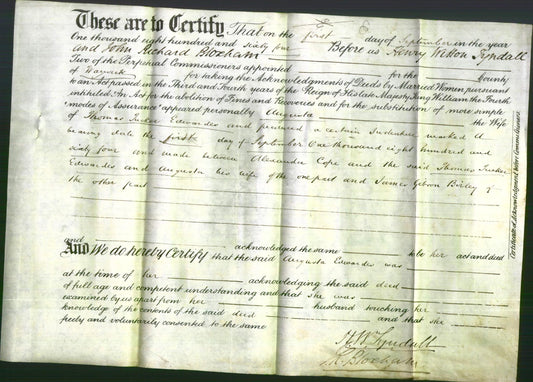 These are to Certify That on the first day of September in the year
One thousand eight hundred and sixty four Before us Henry Witton Tyndall
and John Richard Bloxham
Two of the Perpetual Commissioners appointed for the County
of Warwick for taking the Acknowledgments of Deeds by Married Women pursuant
to an Act passed in the Third and Fourth years of the Reign of His late Majesty King William the Fourth
intituled An Act for the abolition of Fines and Recoveries and for the substitution of more simple
modes of Assurance appeared personally Augusta the Wife
of Thomas Tucker Edwardes and produced a certain Indenture marked A
bearing date the first day of September One thousand eight hundred and
sixty four and made between Alexander Cope and the said Thomas Tucker
Edwardes and Augusta his wife of the one part and James Birley of
the other part
and acknowledged the same to be her act and deed
And We do hereby Certify that the said Augusta Edwardes was
at the time of her acknowledging the said deed
of full age and competent understanding and that she was
examined by us apart from her husband touching her
knowledge of the contents of the said deed and that she
freely and voluntarily consented to the same
H W Tyndall
J R Bloxham